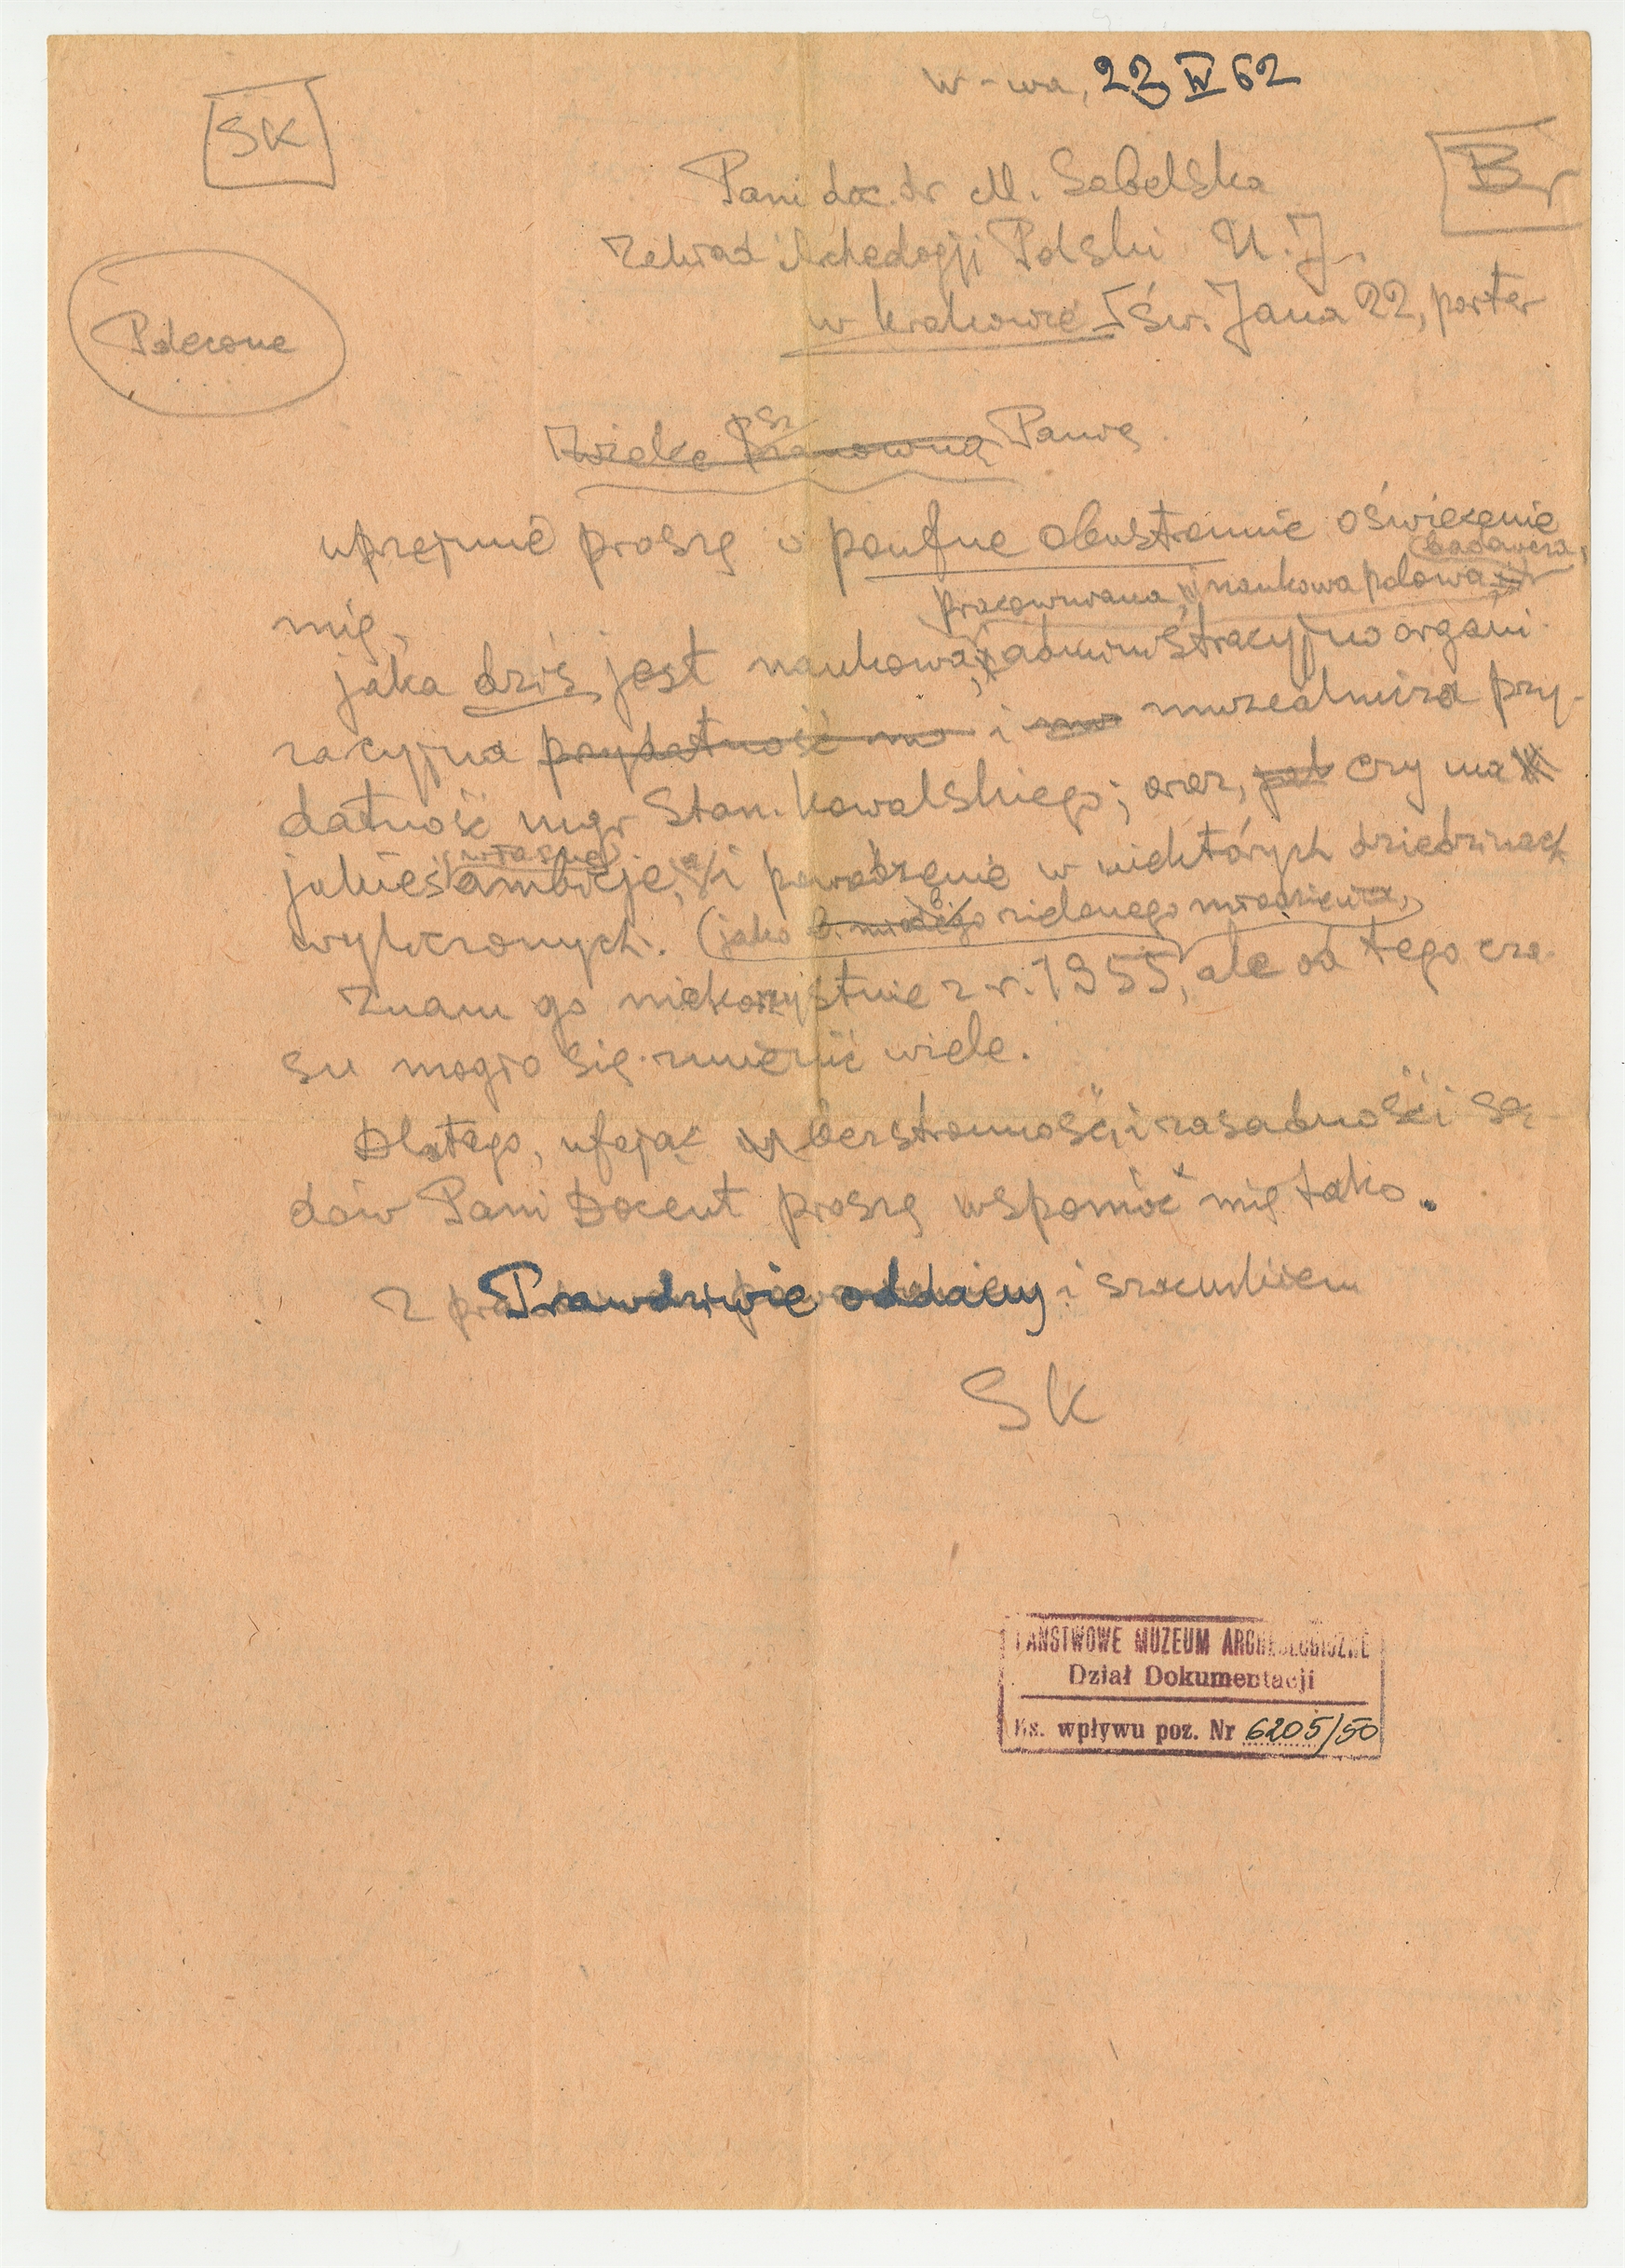 W-wa, 22 IV 62
SK
Br
Pani doc. dr M. Sabelska
Zakład Archeologji Polski U. J.
w Krakowie Św. Jana 22, parter
Polecone
Wielce Szanowna Panie
uprzejmie proszę o poufne obustronnie oświecenie
badawcza,
pracowniana, naukowa polowa
mię,
jaka dziś jest naukowa, administracyjno organi-
zacyjna przydatność i muzealnicza przy-
datność mgr Stan. Kowalskiego; oraz, jak czy ma
własne
jakieś ambicje, i powodzenie w niektórych dziedzinach
wyliczonych. (jako b. młodego zielonego młodzieńca,
Znam go niekorzystnie z r. 1955, ale od tego cza-
su mogło się zmienić wiele.
Dlatego, ufając bezstronności i zasadności są
dów Pani Docent proszę wspomóc mię tako.
Z Prawdziwie oddany i szacunkiem
SK
PAŃSTWOWE MUZEUM ARCHEOLOGICZNE
Dział Dokumentacji
Ks. wpływu poz. Nr 6205/50